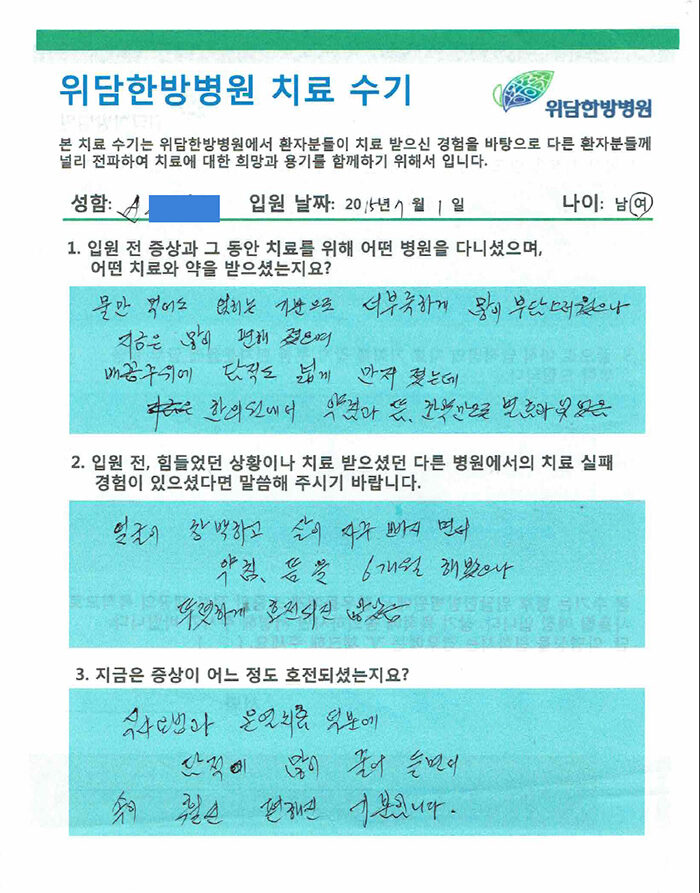 위담한방병원 치료 수기
위담한방병원
본 치료 수기는 위담한방병원에서 환자분들이 치료 받으신 경험을 바탕으로 다른 환자분들께
널리 전파하여 치료에 대한 희망과 용기를 함께하기 위해서 입니다.
성함: 입원 날짜: 2015년 7월 1일 나이: 남 여
1. 입원 전 증상과 그 동안 치료를 위해 어떤 병원을 다니셨으며,
어떤 치료와 약을 받으셨는지요?
물만 먹어도 얹히는 기분으로 더부룩하게 많이 부담스러웠으나
지금은 많이 편해 졌으며
배꼽주위에 단적도 넓게 만져 졌는데
한의원에서 약침과 뜸,
2. 입원 전, 힘들었던 상황이나 치료 받으셨던 다른 병원에서의 치료 실패
경험이 있으셨다면 말씀해 주시기 바랍니다.
얼굴이 창백하고 살이 자꾸 빠지 면서
약침, 뜸을 6개월 해봤으나
뚜렷하게 호전되진 않았음
3. 지금은 증상이 어느 정도 호전되셨는지요?
식사요법과 온열치료 덕분에
단적이 많이 풀어 들면서
속이 훨신 편해진 기분입니다.